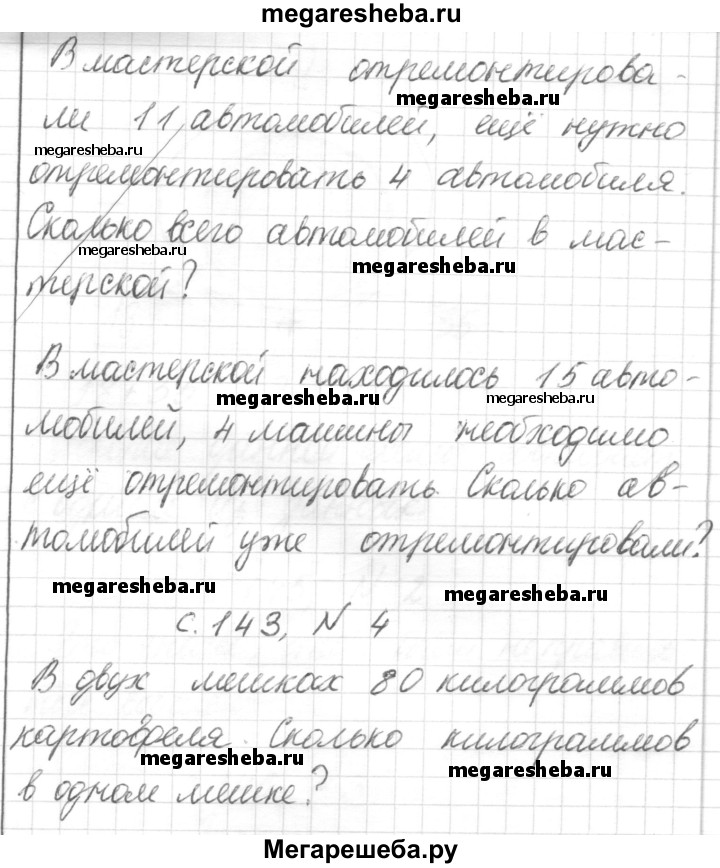 megaresheba.ru
В мастерской отремонтирова-
megaresheba.ru
ли 11 автомобилей, ещё нужно
megaresheba.ru
отремонтировать 4 автомобиля.
Сколько всего автомобилей в мас-
megaresheba.ru
megaresheba.ru
терской?
В мастерской находилось 15 авто-
megaresheba.ru
megaresheba.ru
мобилей, 4 машины необходимо
ещё отремонтировать. Сколько ав-
томобилей уже отремонтировали?
megaresheba.ru
megaresheba.ru
с. 143, N 4
В двух мешках 80 килограммов
картофеля. Сколько килограммов
megaresheba.ru
megaresheba.ru
в одном мешке?
Мегарешеба.ру